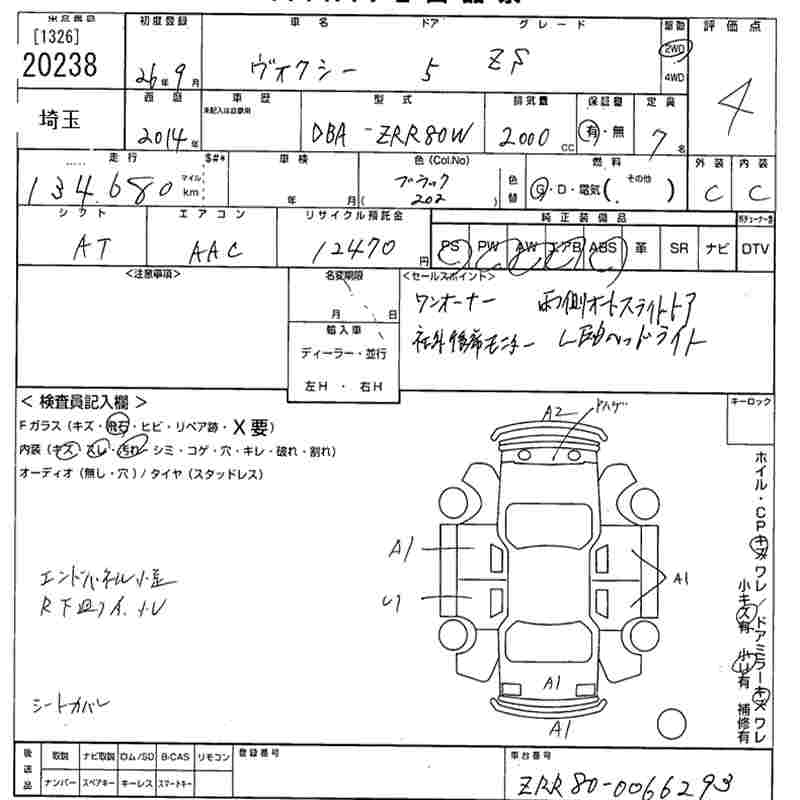 [1326]
20238
初度登録
26年9月
車名
ヴォクシー
ドア
5
グレード
ZS
駆動
2WD
4WD
評価点
4
埼玉
西暦
2014年
車歴
未記入は自家用
型式
DBA-ZRR80W
排気量
2000cc
保証書
有・無
定員
7名
走行
134,680
マイル
km
$#*
車検
年 月
色(Col.No)
ブラック
(202)
色替
燃料
G・D・電気( その他 )
外装
C
内装
C
シフト
AT
エアコン
AAC
リサイクル預託金
12470円
純正装備品
PS PW AW エアB ABS 革 SR ナビ DTV
<注意事項>
名変期限
月 日
輸入車
ディーラー・並行
左H ・ 右H
<セールスポイント>
ワンオーナー 両側オートスライドドア
社外後席モニター LEDヘッドライト
<検査員記入欄>
Fガラス(キズ・飛石・ヒビ・リペア跡・X要)
内装(キズ・スレ・汚れ・シミ・コゲ・穴・キレ・破れ・割れ)
オーディオ(無し・穴)/タイヤ(スタッドレス)
キーロック
A2
A1
A1
U1
A1
A1
ホイル・CPキズワレ/ドアミラーキズワレ
小キズ有 小U有 補修有
シートカバー
後送品
取説 ナビ取説 ロム/SD B-CAS リモコン
ナンバー スペアキー キーレス スマートキー
登録番号
車台番号
ZRR80-0066293